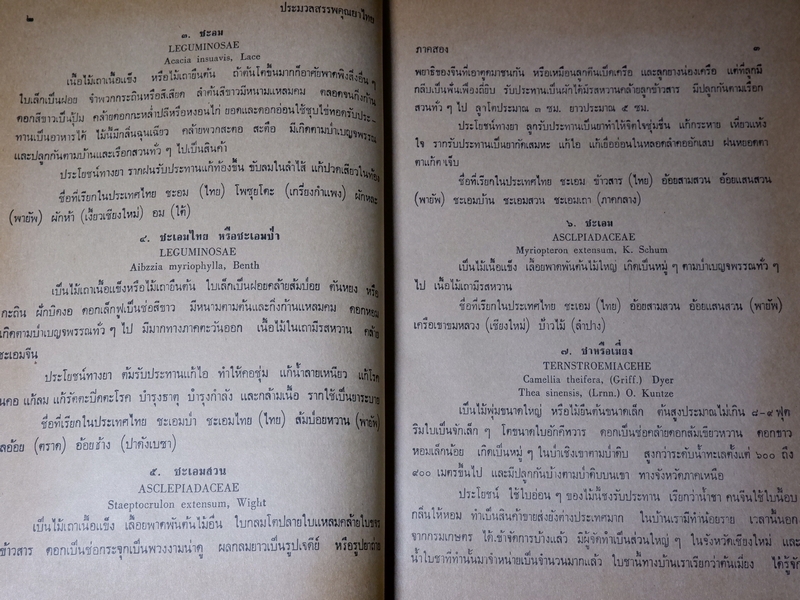 ๒
ประมวลสรรพคุณยาไทย
๓. ชะอม
LEGUMINOSAE
Acacia insuavis, Lace
เนื้อไม้เถาเนื้อแข็ง หรือไม้เถายืนต้น ถ้าต้นโตขึ้นมากก็อาศัยพาดพิงสิ่งอื่น ๆ
ใบเล็กเป็นฝอย จำพวกกระถินหรือส้มเสี้ยด ลำต้นสีขาวมีหนามแหลมคม ตลอดจนกิ่งก้าน
ดอกสีขาวเป็นปุ้ม คล้ายดอกกะหล่ำปลีหรือหงอนไก่ ยอดและดอกอ่อนใช้ชุบไข่ทอดรับประ-
ทานเป็นอาหารได้ ไม้นี้มีกลิ่นฉุนเฉียว คล้ายพวกสะตอ สะตือ มีเกิดตามป่าเบญจพรรณ
และปลูกกันตามบ้านและเรือกสวนทั่ว ๆ ไปเป็นสินค้า
ประโยชน์ทางยา รากฝนรับประทานแก้ท้องขึ้น ขับลมในลำไส้ แก้ปวดเสียวในท้อง
ชื่อที่เรียกในประเทศไทย ชะอม (ไทย) โพซุยโดะ (เกรี่ยงกำแพง) ผักหละ
(พายัพ) ผักห้า (เงี้ยวเชียงใหม่) อม (ใต้)
๔. ชะเอมไทย หรือชะเอมป่า
LEGUMINOSAE
Aibzzia myriophylla, Benth
เป็นไม้เถาเนื้อแข็งหรือไม้เถายืนต้น ใบเล็กเป็นฝอยคล้ายส้มป่อย ต้นหยง หรือ
กะถิน ผักบิดงอ ดอกเล็กฟูเป็นช่อสีขาว มีหนามตามต้นและกิ่งก้านแหลมคม ดอกหอม
เกิดตามป่าเบญจพรรณทั่ว ๆ ไป มีมากทางภาคตะวันออก เนื้อไม้ในเถามีรสหวาน คล้าย
ชะเอมจีน
ประโยชน์ทางยา ต้มรับประทานแก้ไอ ทำให้คอชุ่ม แก้น้ำลายเหนียว แก้โรค
นคอ แก้ลม แก้รัตตะปิตตะโรค บำรุงธาตุ บำรุงกำลัง และกล้ามเนื้อ รากใช้เป็นยาระบาย
ชื่อที่เรียกในประเทศไทย ชะเอมป่า ชะเอมไทย (ไทย) ส้มป่อยหวาน (พายัพ)
ลอ้อย (ตราด) อ้อยช้าง (ปาดังเบซา)
๕. ชะเอมสวน
ASCLEPIADACEAE
Staeptocrulon extensum, Wight
เป็นไม้เถาเนื้อแข็ง เลื้อยพาดพันต้นไม้อื่น ใบกลมโตปลายใบแหลมคล้ายใบชะ
ข้าวสาร ดอกเป็นช่อกระจุกเป็นพวงงามน่าดู ผลกลมยาวเป็นรูปเจดีย์ หรือรูปยาถ่าย
ภาคสอง
๓
พยาธิของจีนที่เอาดูดมาชนกัน หรือเหมือนลูกตีนเป็ดเครือ และลูกยางน่องเครือ แต่ที่ลูกมี
กลีบเป็นพื้นเพื่องถี่ยิบ รับประทานเป็นผักได้มีรสหวานคล้ายลูกข้าวสาร มีปลูกกันตามเรือก
สวนทั่ว ๆ ไป ลูกโตประมาณ ๓ ซม. ยาวประมาณ ๕ ซม.
ประโยชน์ทางยา ลูกรับประทานเป็นยาทำให้จิตใจชุ่มชื่น แก้กระหาย เหี่ยวแห้ง
ใจ รากรับประทานเป็นยากัดเสมหะ แก้ไอ แก้เยื่ออ่อนในหลอดลำคออักเสบ ฝนหยอดตา
ตาแก้ตาเจ็บ
ชื่อที่เรียกในประเทศไทย ชะเอม ข้าวสาร (ไทย) อ้อยสามสวน อ้อยแสนสวน
(พายัพ) ชะเอมบ้าน ชะเอมสวน ชะเอมเถา (ภาคกลาง)
๖. ชะเอม
ASCLPIADACEAE
Myriopteron extensum, K. Schum
เป็นไม้เนื้อแข็ง เลื้อยพาดพันต้นไม้ใหญ่ เกิดเป็นหมู่ ๆ ตามป่าเบญจพรรณทั่ว ๆ
ไป เนื้อไม้เถามีรสหวาน
ชื่อที่เรียกในประเทศไทย ชะเอม (ไทย) อ้อยสามสวน อ้อยแสนสวน (พายัพ)
เครือเขาขมหลวง (เชียงใหม่) ป้าวไม้ (ลำปาง)
๗. ชาหรือเมี่ยง
TERNSTROEMIACEHE
Camellia theifera, (Griff.) Dyer
Thea sinensis, (Lrnn.) O. Kuntze
เป็นไม้พุ่มขนาดใหญ่ หรือไม้ยืนต้นขนาดเล็ก ต้นสูงประมาณไม่เกิน ๘-๙ ฟุต
ริมใบเป็นจักเล็ก ๆ โตขนาดใบอักดีทวาร ดอกเป็นช่อคล้ายดอกส้มเขียวหวาน ดอกขาว
หอมเล็กน้อย เกิดเป็นหมู่ ๆ ในป่าเชิงเขาตามป่าดิบ สูงกว่าระดับน้ำทะเลตั้งแต่ ๖๐๐ ถึง
๙๐๐ เมตรขึ้นไป และมีปลูกกันบ้างตามป่าดิบบนเขา ทางจังหวัดภาคเหนือ
ประโยชน์ ใช้ใบอ่อน ๆ ของไม้นี้ชงรับประทาน เรียกว่าน้ำชา คนจีนใช้ใบนี้อบ
กลิ่นให้หอม ทำเป็นสินค้าขายส่งยังต่างประเทศมาก ในบ้านเรามีทำน้อยราย เวลานี้นอก
จากกรมเกษตร ได้เข้าจัดการบ้างแล้ว มีผู้จัดทำเป็นส่วนใหญ่ ๆ ในจังหวัดเชียงใหม่ และ
น้ำใบชาที่ทำนั้นมาจำหน่ายเป็นจำนวนมากแล้ว ใบชานี้ทางบ้านเราเรียกว่าต้นเมี่ยง ได้รู้จัก